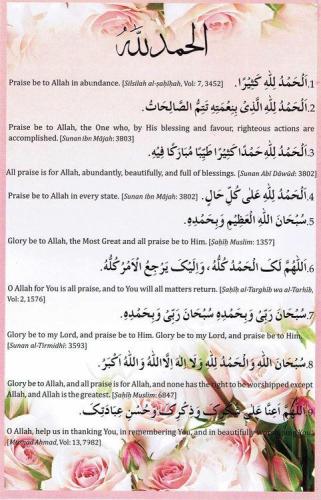 الحمد لله
1.اَلْحَمْدُ لِلّٰهِ كَثِيْرًا.
Praise be to Allah in abundance. [Silsilah al-ṣaḥīḥah, Vol: 7, 3452]
2.اَلْحَمْدُ لِلّٰهِ الَّذِيْ بِنِعْمَتِهِ تَتِمُّ الصَّالِحَاتُ.
Praise be to Allah, the One who, by His blessing and favour, righteous actions are
accomplished. [Sunan ibn Mājah: 3803]
3.اَلْحَمْدُ لِلّٰهِ حَمْدًا كَثِيْرًا طَيِّبًا مُبَارَكًا فِيْهِ.
All praise is for Allah, abundantly, beautifully, and full of blessings. [Sunan Abī Dāwūd: 3802]
4.اَلْحَمْدُ لِلّٰهِ عَلٰى كُلِّ حَالٍ.
Praise be to Allah in every state. [Sunan ibn Mājah: 3802]
5.سُبْحَانَ اللهِ الْعَظِيْمِ وَبِحَمْدِهِ.
Glory be to Allah, the Most Great and all praise be to Him. [Ṣaḥīḥ Muslim: 1357]
6.اَللّٰهُمَّ لَكَ الْحَمْدُ كُلُّهُ، وَإِلَيْكَ يَرْجِعُ الْأَمْرُ كُلُّهُ.
O Allah for You is all praise, and to You will all matters return. [Ṣaḥīḥ al-Targhīb wa al-Tarhīb,
Vol: 2, 1576]
7.سُبْحَانَ رَبِّيْ وَبِحَمْدِهِ سُبْحَانَ رَبِّيْ وَبِحَمْدِهِ.
Glory be to my Lord, and praise be to Him. Glory be to my Lord, and praise be to Him.
[Sunan al-Tirmidhī: 3593]
8.سُبْحَانَ اللهِ وَالْحَمْدُ لِلّٰهِ وَلَا إِلٰهَ إِلَّا اللهُ وَاللهُ أَكْبَرُ.
Glory be to Allah, and all praise is for Allah, and none has the right to be worshipped except
Allah, and Allah is the greatest. [Ṣaḥīḥ Muslim: 6847]
9.اَللّٰهُمَّ أَعِنَّا عَلٰى شُكْرِكَ وَذِكْرِكَ وَحُسْنِ عِبَادَتِكَ.
O Allah, help us in thanking You, in remembering You, and in beautifully worshipping You.
[Musnad Ahmad, Vol: 13, 7982]